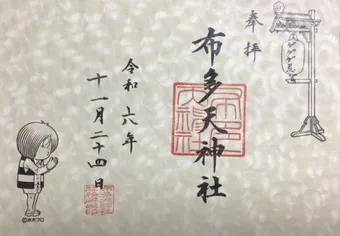 奉拝
布多天神社
令和六年
十一月二十四日
©水木プロ